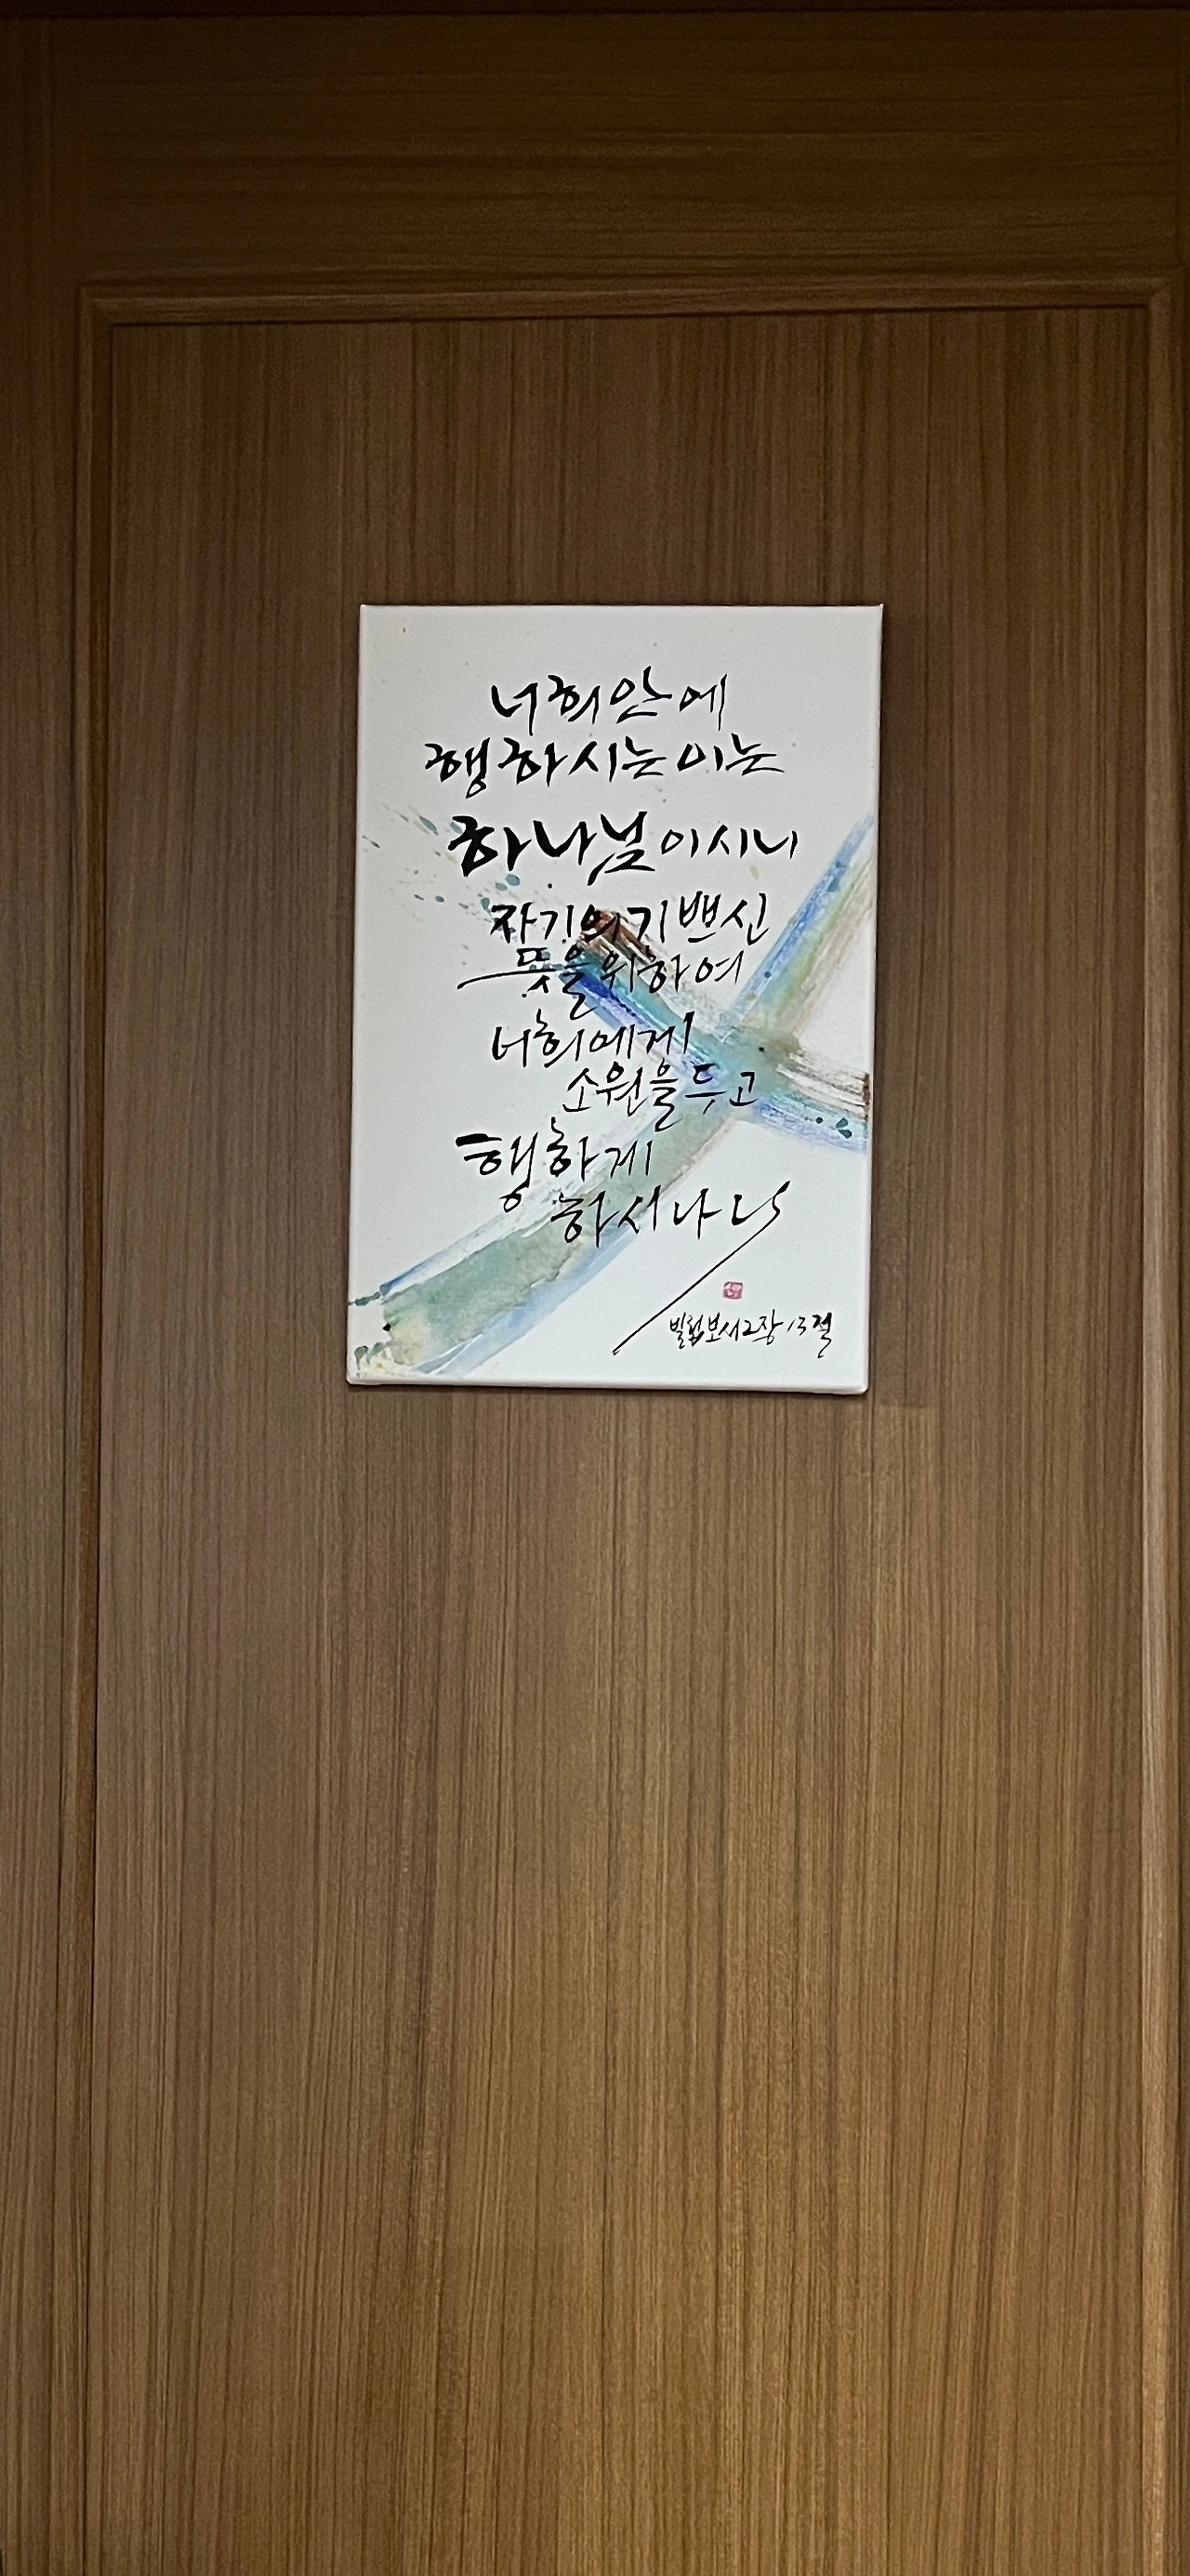 너희안에
행하시는이는
하나님이시니
자기의기쁘신
뜻을위하여
너희에게
소원을두고
행하게
하시나니
빌립보서2장 13절